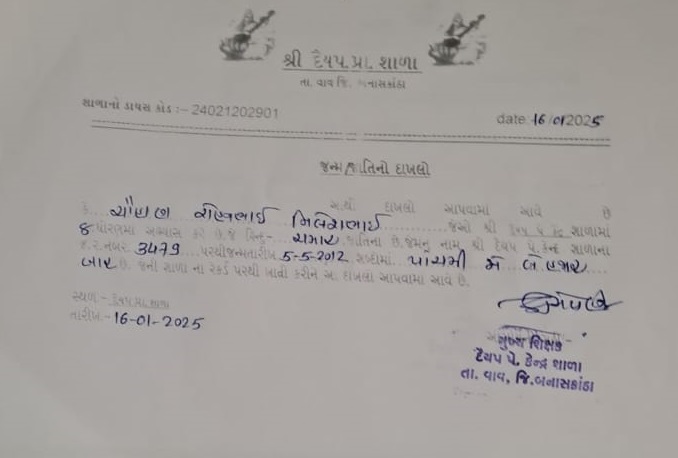 શ્રી દૈયપ.પ્રા. શાળા
તા. વાવ જિ. બનાસકાંઠા
સાળાનો ડાયસ કોડ :– 24021202901
date: 16/01/2025
જન્મ/જાતિનો દાખલો
ચૌહાણ આપવામાં આવે છે
8 ધોરણમાં અભ્યાસ કરે છે.જે હિન્દુ– ચમાર જાતિના છે.જેમનુ નામ શ્રી દૈયપ પે.કેન્દ્ર શાળાના
જ.ર.નંબર 3479 પરથીજન્મતારીખ 5-5-2012 શબ્દોમાં પાચમી મે બે હજાર
બાર છે. જેની શાળા ના રેકર્ડ પરથી ખાત્રી કરીને આ દાખલો આપવામાં આવે છે.
સ્થળ:-
તારીખ:- 16-01-2025
મુખ્ય શિક્ષક
દૈયપ પે. કેન્દ્ર શાળા
તા. વાવ, જિ.બનાસકાંઠા